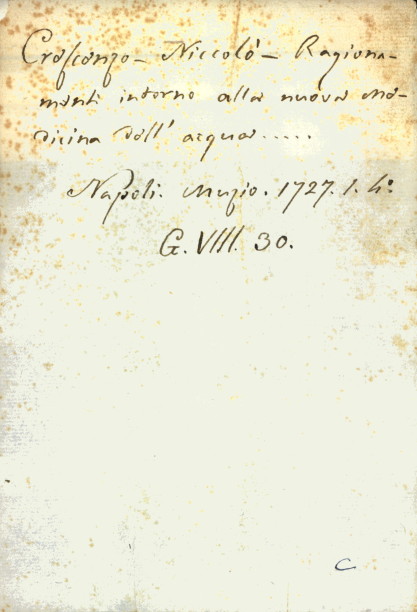 Crescenzo - Niccolò - Ragiona-
menti intorno alla nuova me-
dicina dell' acqua .....
Napoli. Muzio. 1727. 1. 4º
G. VIII. 30.
C